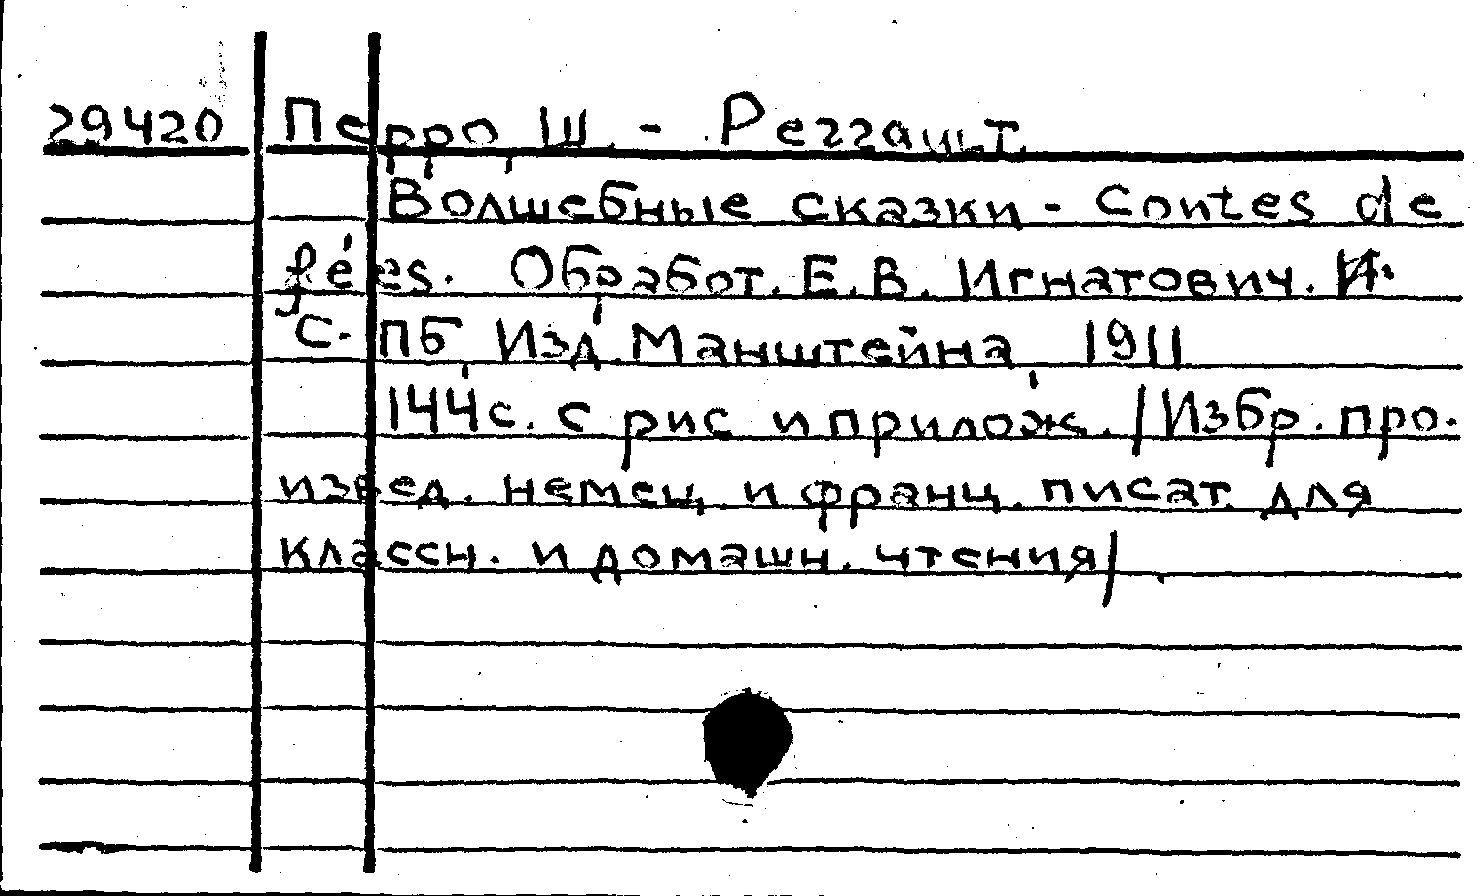 29420 Перро, Ш. - Perrault.
Волшебные сказки - Contes de
fées. Обработ. Е.В. Игнатович.
С.ПБ, Изд. Манштейна, 1911
144с. с рис и прилож. /Избр. про.
извед. немец. и франц. писат. для
классн. и домашн. чтения/